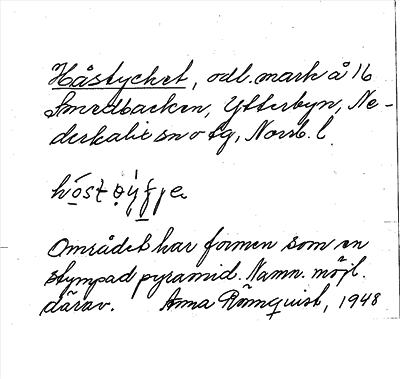 Håstycket, odl. mark å 16
Smedbacken, Ytterbyn, Ne-
derkalix sn o tg, Norrb. l.
Området har formen som en
stympad pyramid. Namn. möjl.
därav. Anna Rönnquist, 1948